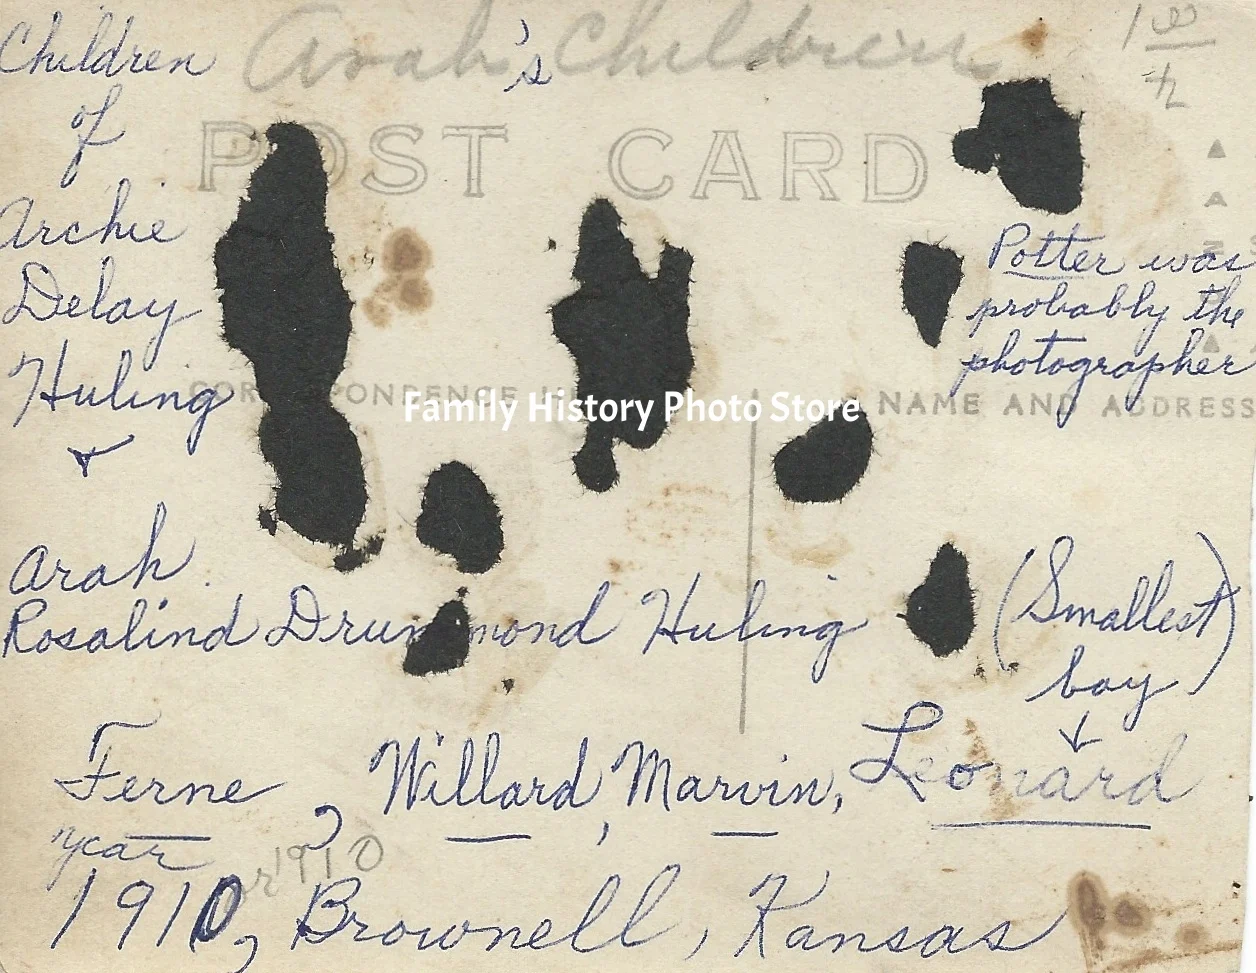 Children Arah's Children 1 00
of
POST CARD
Archie
Delay
Huling
&
Potter was
probably the
photographer
CORRESPONDENCE
NAME AND ADDRESS
Family History Photo Store
Arah
Rosalind Drummond Huling
(Smallest
boy)
Ferne, Willard, Marvin, Leonard
year
or 1910
1910, Brownell, Kansas